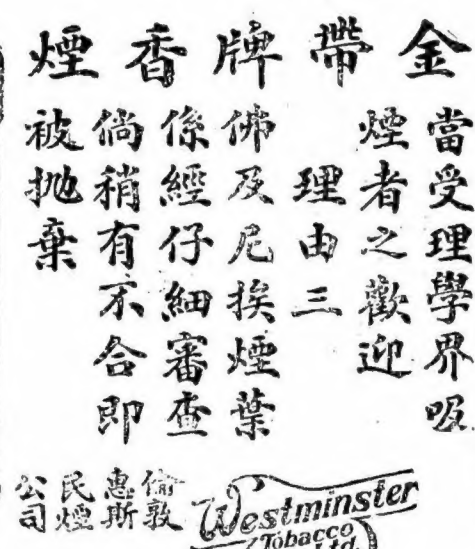 金帶牌香煙
當受理學界吸
煙者之歡迎
理由三
佛及尼挨煙葉
係經仔細審查
倘稍有不合即
被拋棄
倫敦
惠斯
民煙
公司
Westminster
Tobacco
Ltd.